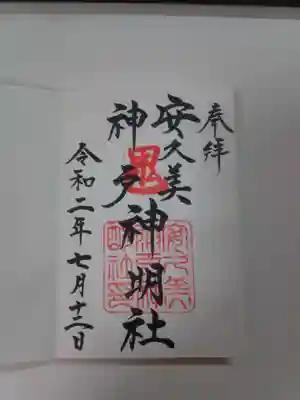 奉拝
安久美
神戸
神明社
令和二年七月十二日